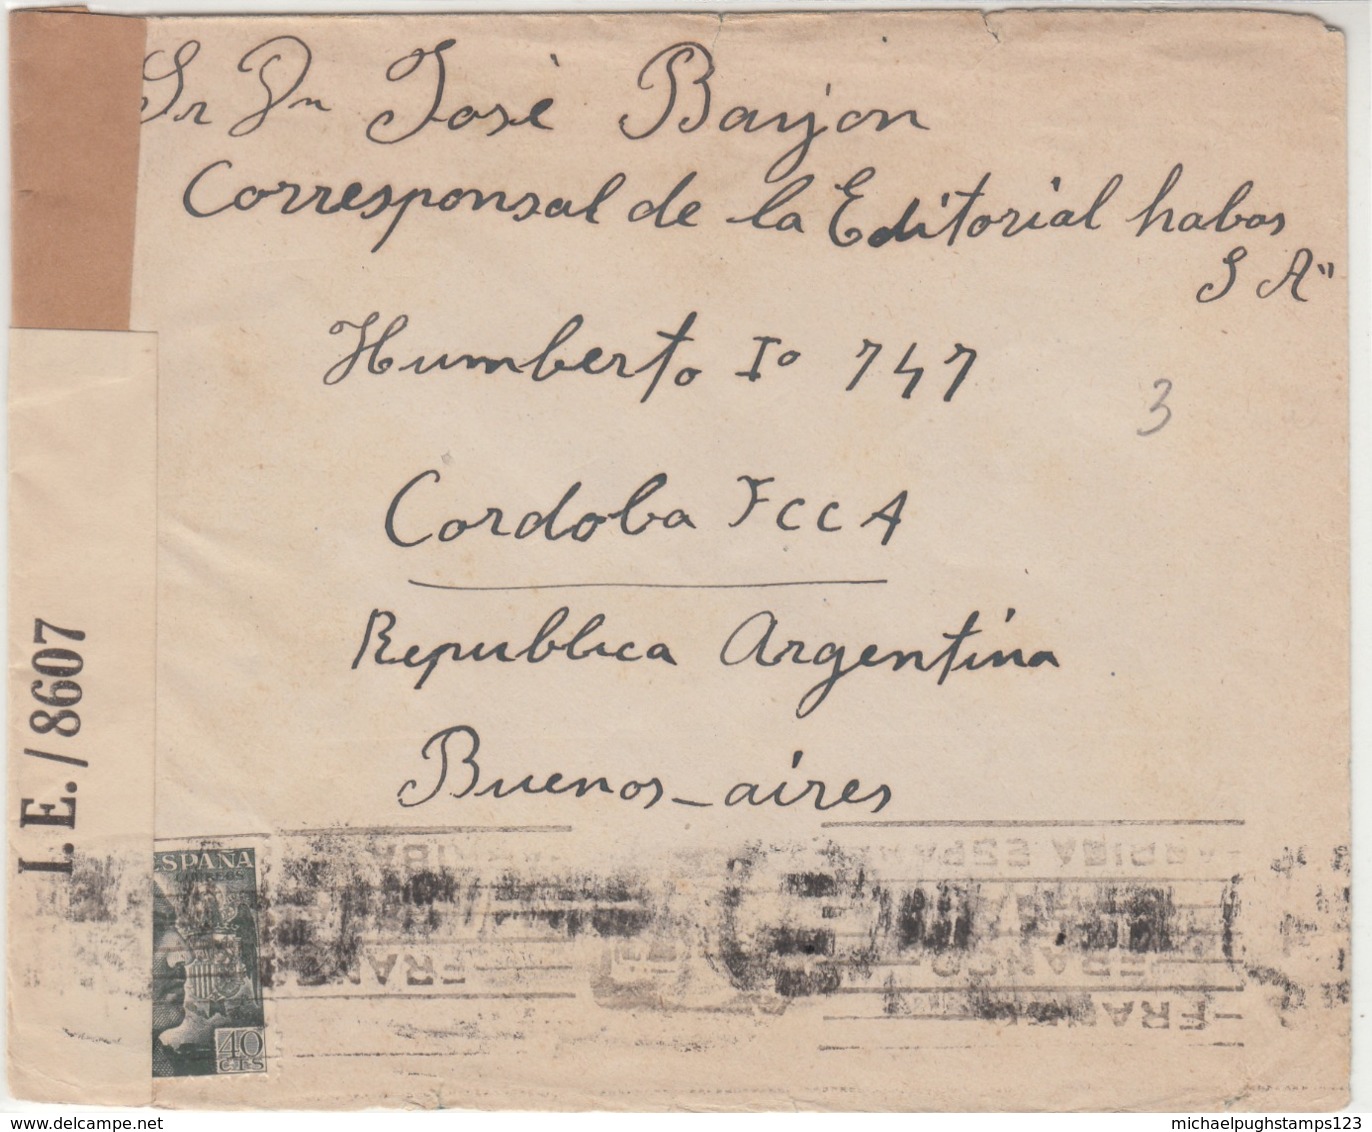 Sr Dn José Bayjon
Corresponsal de la Editorial habos
S A"
Humberto Iº 747
3
Cordoba FCCA
Republica Argentina
Buenos-aires
I.E./8607
ESPAÑA
CORREOS
40
CTS
ARRIBA ESPAÑA
FRANCO
FRANCO
FRANCO
www.delcampe.net
michaelpughstamps123